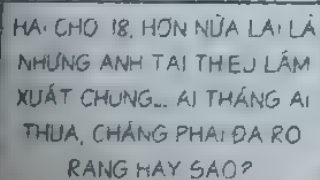 HAI CHO 18, HƠN NỮA LẠI LÀ
NHƯNG ANH TAI THEU LẮM
XUẤT CHUNG... AI THẮNG AI
THUA, CHẲNG PHẢI ĐA RO
RANG HAY SAO?